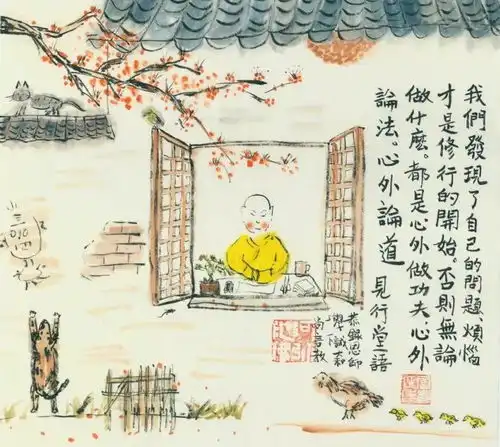 我們發現了自己的問題、煩惱
才是修行的開始。否則無論
做什麼。都是心外做功夫。心外
論法。心外論道 見行堂語
恭錄恩師
學誠和
尚言教